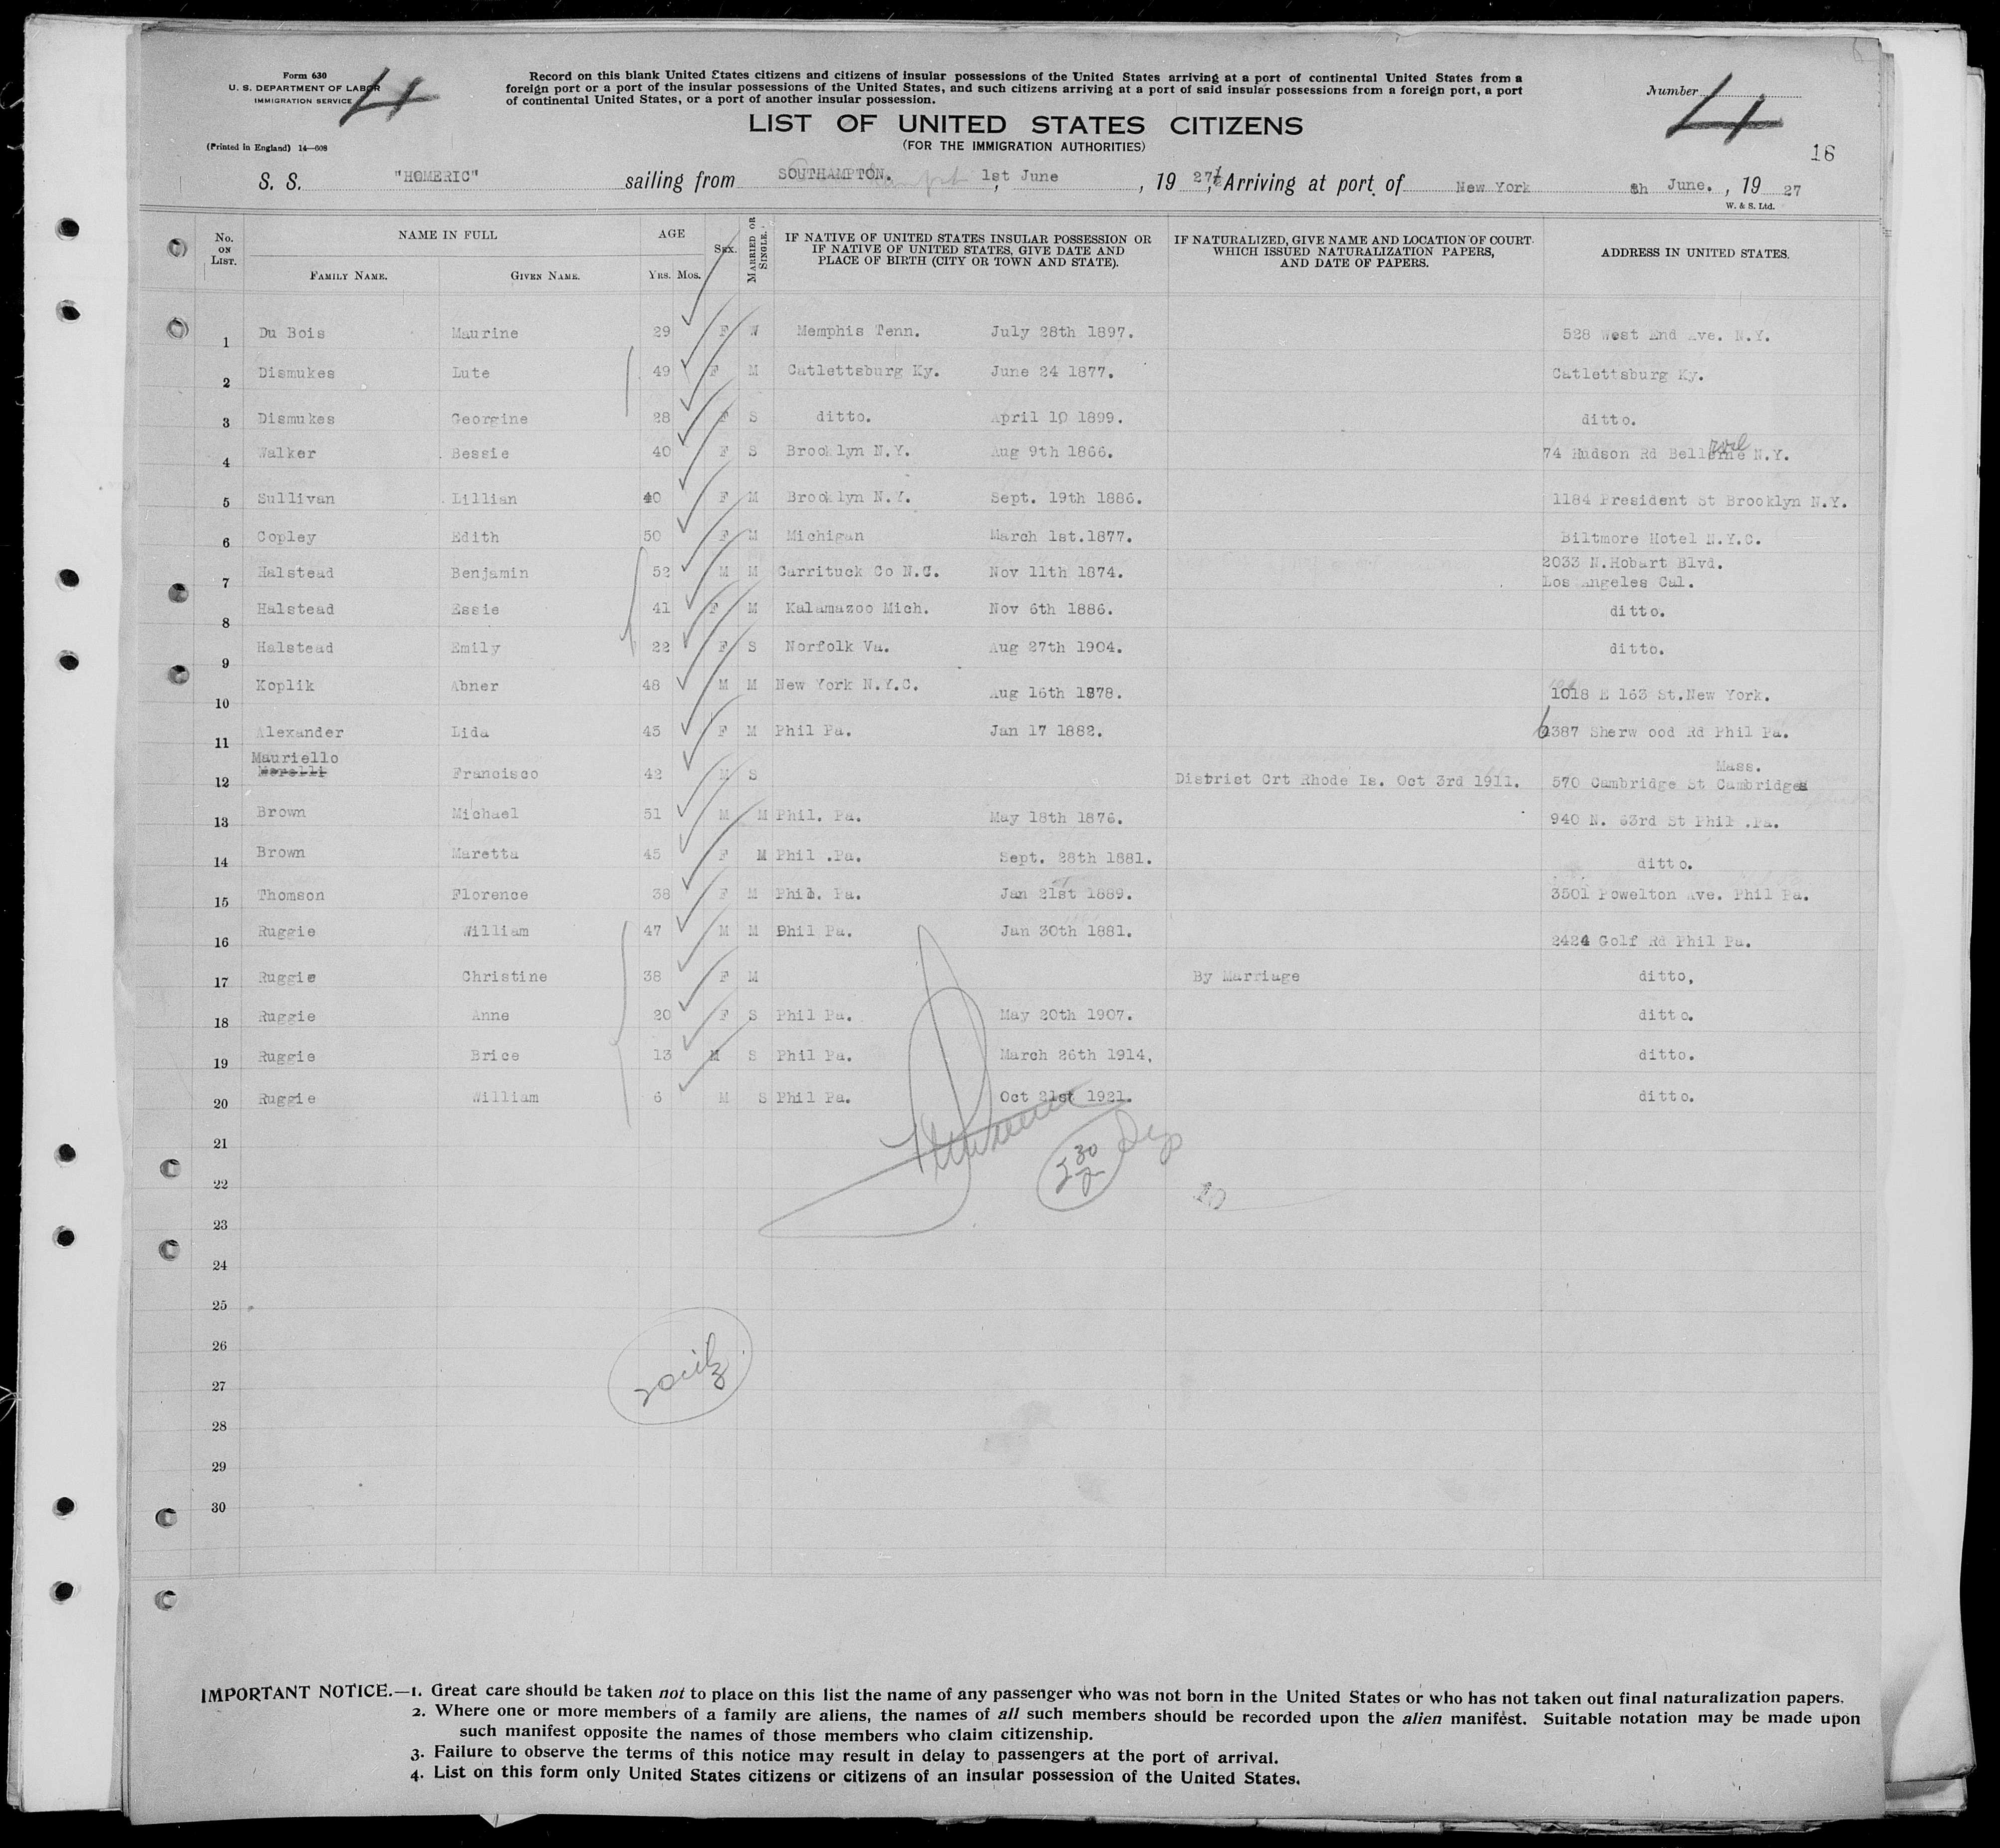 Form 630
U. S. DEPARTMENT OF LABOR
IMMIGRATION SERVICE
4
(Printed in England) 14—608
Record on this blank United States citizens and citizens of insular possessions of the United States arriving at a port of continental United States from a
foreign port or a port of the insular possessions of the United States, and such citizens arriving at a port of said insular possessions from a foreign port, a port
of continental United States, or a port of another insular possession.
LIST OF UNITED STATES CITIZENS
(FOR THE IMMIGRATION AUTHORITIES)
Number 4
16
S. S. "HOMERIC" sailing from SOUTHAMPTON. , 1st June , 19 27, Arriving at port of New York th June. , 19 27
W. & S. Ltd.
No. ON LIST. NAME IN FULL FAMILY NAME. GIVEN NAME. AGE YRS. MOS. SEX. MARRIED OR SINGLE. IF NATIVE OF UNITED STATES INSULAR POSSESSION OR IF NATIVE OF UNITED STATES, GIVE DATE AND PLACE OF BIRTH (CITY OR TOWN AND STATE). IF NATURALIZED, GIVE NAME AND LOCATION OF COURT WHICH ISSUED NATURALIZATION PAPERS, AND DATE OF PAPERS. ADDRESS IN UNITED STATES.
1 Du Bois Maurine 29 F W Memphis Tenn. July 28th 1897. 528 West End Ave. N.Y.
2 Dismukes Lute 49 F M Catlettsburg Ky. June 24 1877. Catlettsburg Ky.
3 Dismukes Georgine 28 F S ditto. April 10 1899. ditto.
4 Walker Bessie 40 F S Brooklyn N.Y. Aug 9th 1866. 74 Hudson Rd N.Y.
5 Sullivan Lillian 40 F M Brooklyn N.Y. Sept. 19th 1886. 1184 President St Brooklyn N.Y.
6 Copley Edith 50 F M Michigan March 1st.1877. Biltmore Hotel N.Y.C.
7 Halstead Benjamin 52 M M Carrituck Co N.C. Nov 11th 1874. 2033 N.Hobart Blvd.
Los Angeles Cal.
8 Halstead Essie 41 F M Kalamazoo Mich. Nov 6th 1886. ditto.
9 Halstead Emily 22 F S Norfolk Va. Aug 27th 1904. ditto.
10 Koplik Abner 48 M M New York N.Y.C. Aug 16th 1878. 1018 E 163 St.New York.
11 Alexander Lida 45 F M Phil Pa. Jan 17 1882. 6387 Sherw ood Rd Phil Pa.
Mauriello
12 Morelli Francisco 42 M S District Crt Rhode Is. Oct 3rd 1911. 570 Cambridge St Cambridge Mass.
13 Brown Michael 51 M M Phil. Pa. May 18th 1876. 940 N. 63rd St Phil .Pa.
14 Brown Maretta 45 F M Phil .Pa. Sept. 28th 1881. ditto.
15 Thomson Florence 38 F M Phil. Pa. Jan 21st 1889. 3501 Powelton Ave. Phil Pa.
16 Ruggie William 47 M M Phil Pa. Jan 30th 1881. 2424 Golf Rd Phil Pa.
17 Ruggie Christine 38 F M By Marriage ditto,
18 Ruggie Anne 20 F S Phil Pa. May 20th 1907. ditto.
19 Ruggie Brice 13 M S Phil Pa. March 26th 1914, ditto.
20 Ruggie William 6 M S Phil Pa. Oct 21st 1921. ditto.
21
22
23
24
25
26
27
28
29
30
IMPORTANT NOTICE.—1. Great care should be taken not to place on this list the name of any passenger who was not born in the United States or who has not taken out final naturalization papers.
2. Where one or more members of a family are aliens, the names of all such members should be recorded upon the alien manifest. Suitable notation may be made upon
such manifest opposite the names of those members who claim citizenship.
3. Failure to observe the terms of this notice may result in delay to passengers at the port of arrival.
4. List on this form only United States citizens or citizens of an insular possession of the United States.